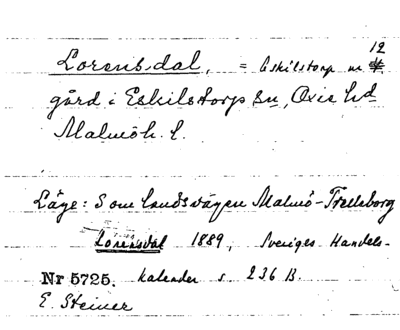 Lorensdal, = Eskilstorp nr 12
gård i Eskilstorps sn, Oxie hd
Malmöh. l.
Läge: S om landsvägen Malmö-Trelleborg
Lorensdal 1889, Sveriges Handels-
Nr 5725. kalender s 236 B.
E. Steiner